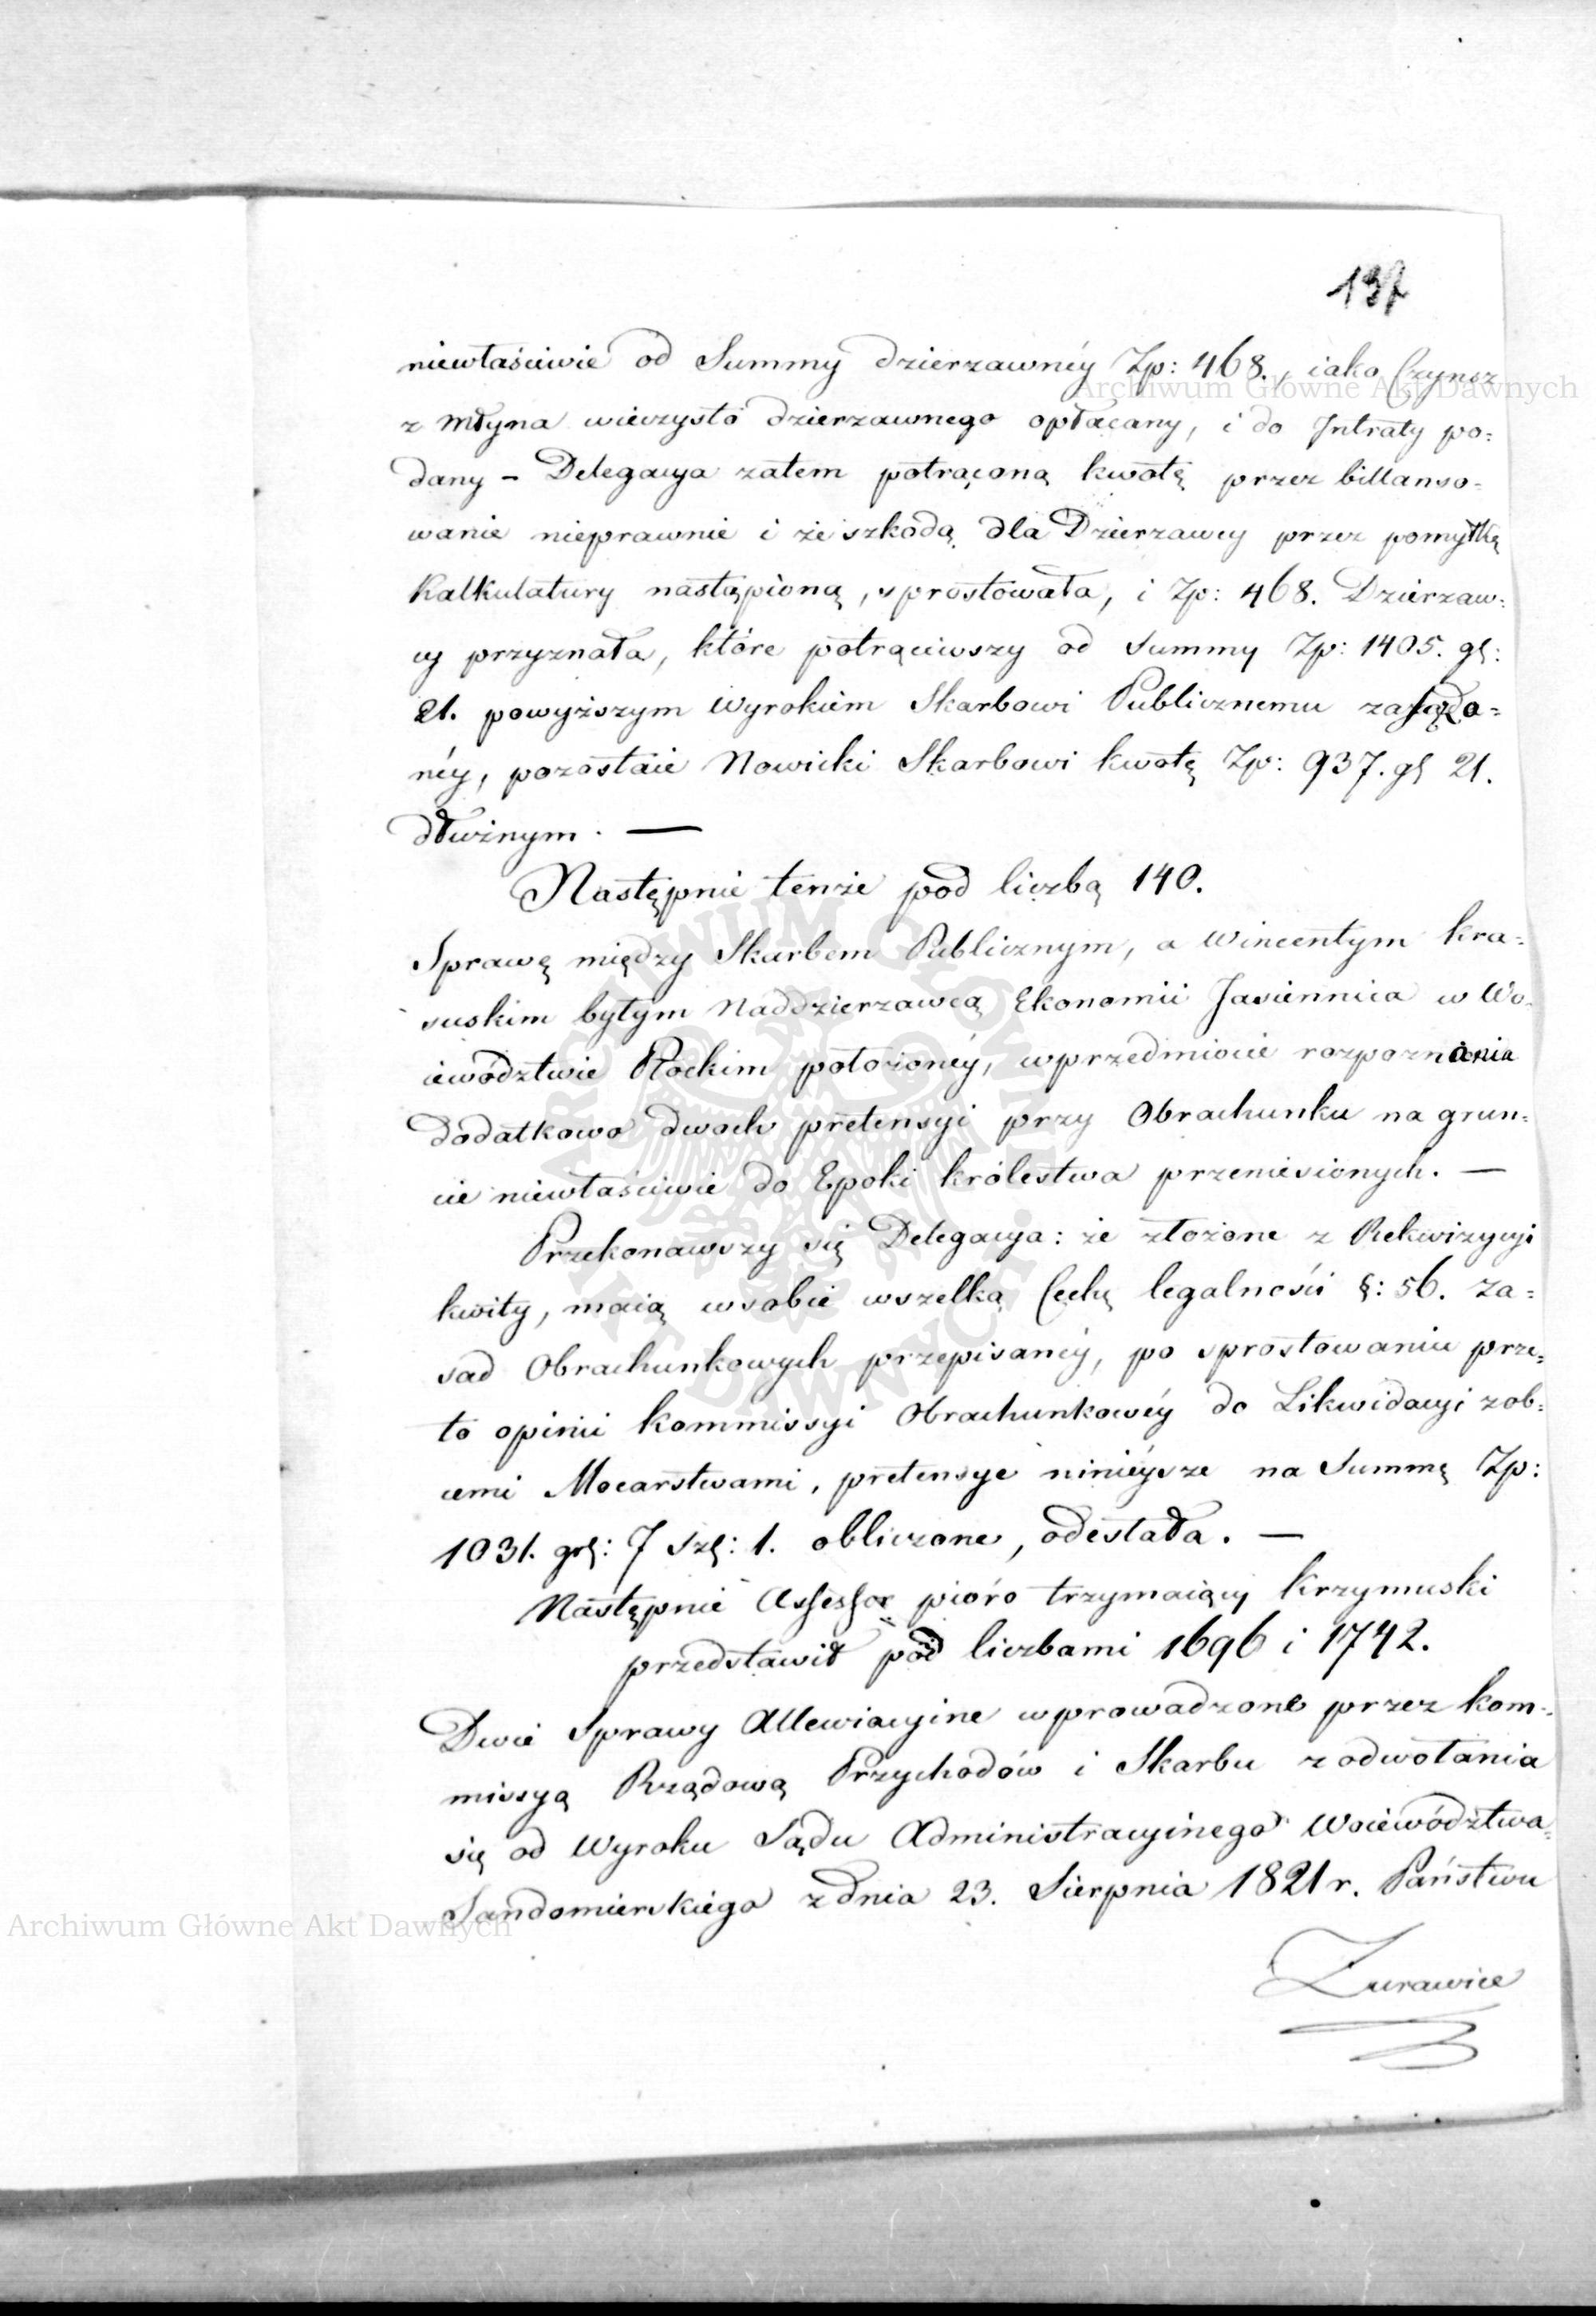 137
niewłaściwie od Summy dzierzawnéy Zp: 468., iako Czynsz
z Młyna wieczysto dzierzawnego opłacany, i do Intraty po=
dany – Delegacya zatem potrąconą kwotę przez billanso=
wanie nieprawnie i ze szkodą dla Dzierzawcy przez pomyłkę
Kalkulatury nastąpioną, sprostowała, i Zp: 468. Dzierzaw=
cy przyznała, które potrąciwszy od Summy Zp: 1405. gl:
21. powyższym Wyrokiem Skarbowi Publicznemu zasądzo=
néy, pozostaie Nowicki Skarbowi kwotę Zp: 937. gl 21.
dłużnym. —
Następnie tenże pod liczbą 140.
Sprawę między Skarbem Publicznym, a Wincentym Kra=
suskim byłym Naddzierzawcą Ekonomii Jasiennica w Wo=
iewództwie Płockim położonéy, w przedmiocie rozpoznania
dodatkowo dwoch pretensyi przy Obrachunku na grun=
cie niewłaściwie do Epoki królestwa przeniesionych. —
Przekonawszy się Delegacya: że złożone z Rekwizycyi
kwity, maią w sobie wszelką Cechę legalności §: 56. Za=
sad Obrachunkowych przepisanéy, po sprostowaniu prze=
to opinii Kommissyi Obrachunkowéy do Likwidacyi z ob=
cemi Mocarstwami, pretensye ninieysze na Summę Zp:
1031. grl: 7 szl: 1. obliczone, odesłała. —
Następnie Assessor pióro trzymaiący Krzymuski
przedstawił pod liczbami 1696 i 1742.
Dwie Sprawy Allewiacyine wprowadzone przez Kom=
missyą Rządową Przychodów i Skarbu z odwołania
się od Wyroku Sądu Administracyinego Woiewództwa
Sandomierskiego z dnia 23. Sierpnia 1821 r. Państwu
Zurawice
Archiwum Główne Akt Dawnych
Archiwum Główne Akt Dawnych
ARCHIWUM GŁÓWNE AKT DAWNYCH